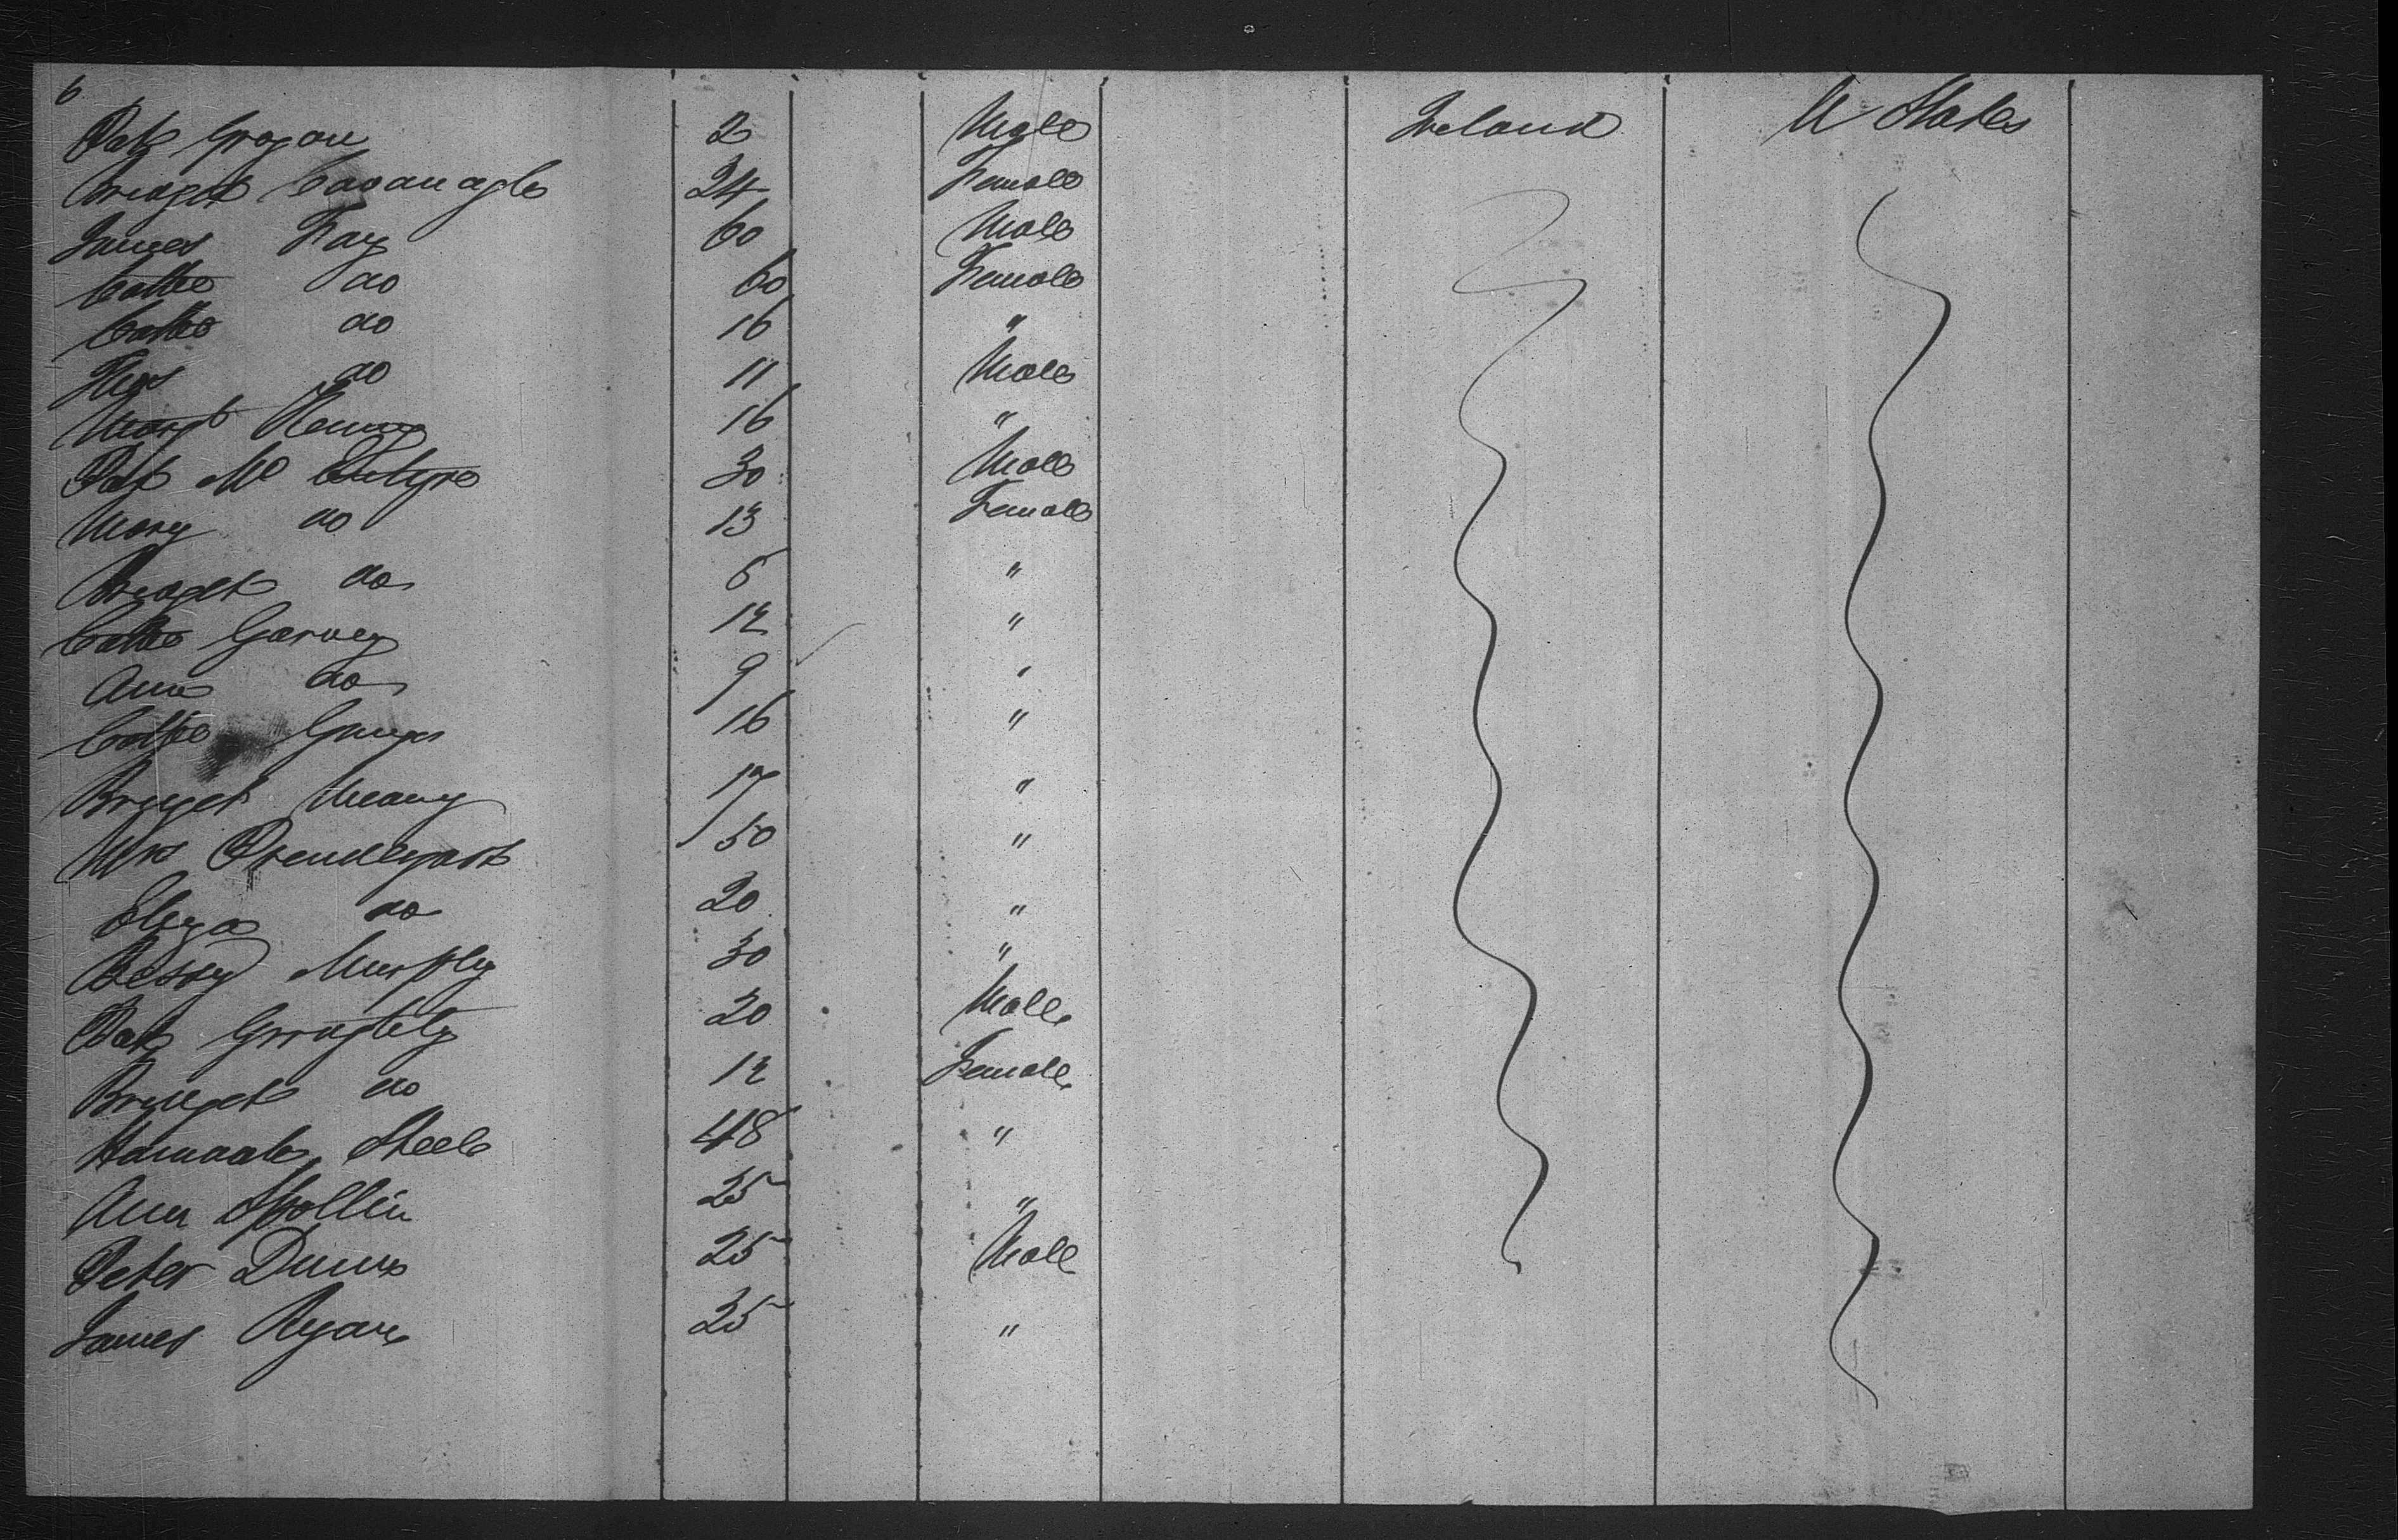 6
Patk Grogan 2 Male Ireland U States
Bridget Cavanagh 24 Female
James Fay 60 Male
Cathe do 60 Female
Cathe do 16 "
Thos do 11 Male
Margt Kenny 16 "
Pat Mc Entyre 30 Male
Mary do 13 Female
Bridget do 6 "
Cathe Garvey 12 "
Ann do 9 "
Cathe 16 "
Bridget Meany 17 "
Mrs Prendergast 50 "
Eliza do 20 "
Betsey Murphy 30 "
Patk 20 Male
Bridget do 12 Female
Hannah Steele 48 "
Ann Spollin 25 "
Peter Dunn 25 Male
James Ryan 35 "